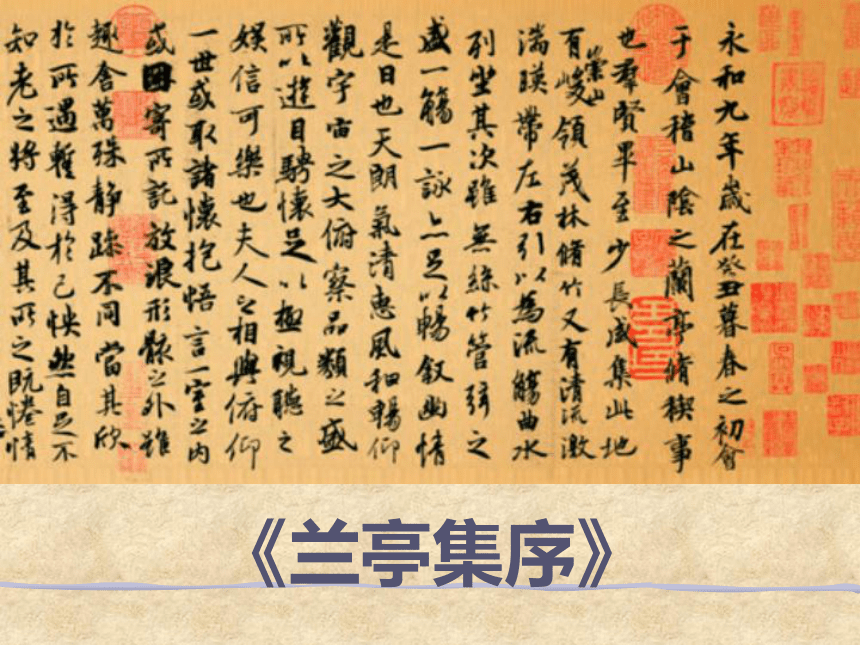 永和九年歲在癸丑暮春之初會
于會稽山陰之蘭亭脩稧事
也羣賢畢至少長咸集此地
有崇山峻領茂林脩竹又有清流激
湍暎帶左右引以為流觴曲水
列坐其次雖無絲竹管弦之
盛一觴一詠亦足以暢敘幽情
是日也天朗氣清惠風和暢仰
觀宇宙之大俯察品類之盛
所以遊目騁懷足以極視聽之
娛信可樂也夫人之相與俯仰
一世或取諸懷抱悟言一室之內
或因寄所託放浪形骸之外雖
趣舍萬殊靜躁不同當其欣
於所遇暫得於己怏然自足不
知老之將至及其所之既惓情
《兰亭集序》